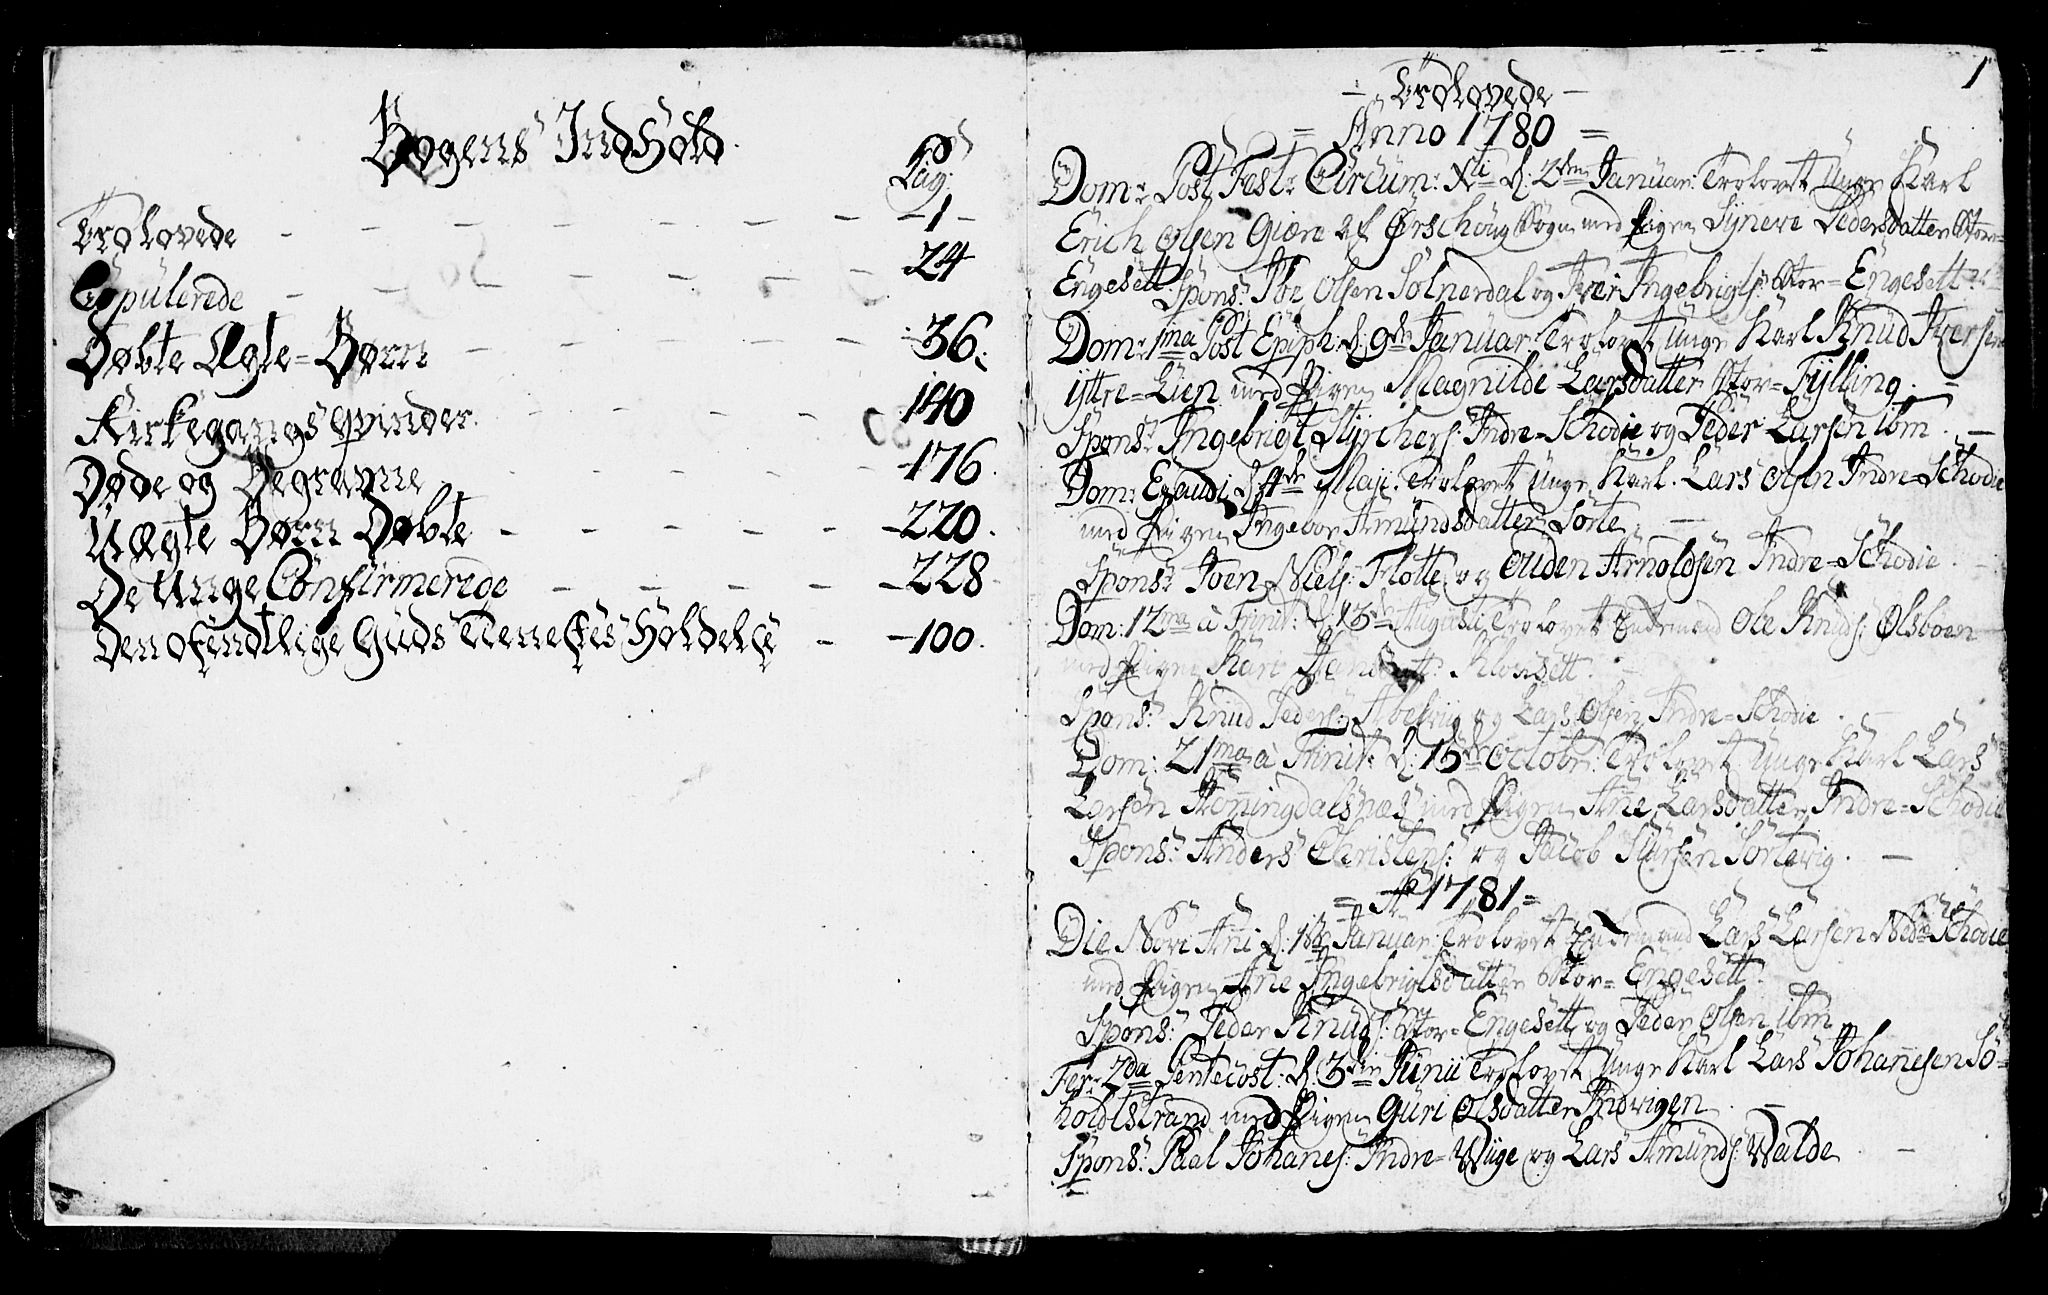 Bogens Indhold.
Pag:
Troelovede - - - - - - - - 1 -
Copulerede - - - - - - - 24
Døbte Ægte=Børn - - - - - - 36.
Kirkegangs qvinder. - - - - - 140
Døde og Begravne - - - - - 176.
Uægte Børn Døbte - - - - - 220.
De Unge Confirmerede - - - - - 228
Den ofendtlige Guds Tienestes Holdelse - - 100.
1
- Troelovede -
= Anno 1780 =
Dom: Post Fest: Circum: Xti d: 2den Januar: Trolovet Unge Karl
Erich Olsen Giære af Ørschoug Sogn med Pigen Synneve Pedersdatter Stor=
Engesett. Spons: Ole Olsen Solnørdal og Iver Ingebrigts: Stor=Engesett
Dom: 1ma Post Epiph: d: 9de Januar Trolovet Unge Karl Knud Iversen
yttre=Lien med Pigen Magnilde Larsdatter Stor=Fylling. -
Spons: Ingebrigt Styrchers: Indre=Schodie og Peder Larsen ibm. -
Dom: Exaudi d: Maji. Trolovet Unge Karl. Lars Olsen Indre=Schodie
med Pigen Ingebor Amundsdatter Sorte. -
Spons: Joen Niels: Flotte og Ouden Arnoldsen Indre=Schodie. -
Dom: 12ma à Trinit: d: 13de Augusti Trolovet Enkemand Ole Knuds: Olsboen
med Pigen Kari Klousett. -
Spons: Knud Peders: og Lars Olsen Indre=Schodie. -
Dom: 21ma à Trinit: d: 15de Octobr: Trolovet Unge Karl Lars
Larsen Honningdalsnæs med Pigen Ane Larsdatter Indre=Schodie
Spons: Anders Christens: og Jacob Sortevig. -
= Ao 1781 =
Die Novi Ani d: 1ste Januar: Trolovet Enkemand Lars Larsen Nedre Schodie
med Pigen Ane Ingebrigtsdatter Stor=Engesett.
Spons: Peder Knuds: Stor=Engesett og Peder Olsen ibm
Fer: 2da Pentecost: d: 3die Junii Trolovet Unge Karl Lars Johannesen So=
holdtstrand med Pigen Guri Olsdatter Indvigen. -
Spons: Paal Johanes: Indre=Wiige og Lars Amunds: Walde. -